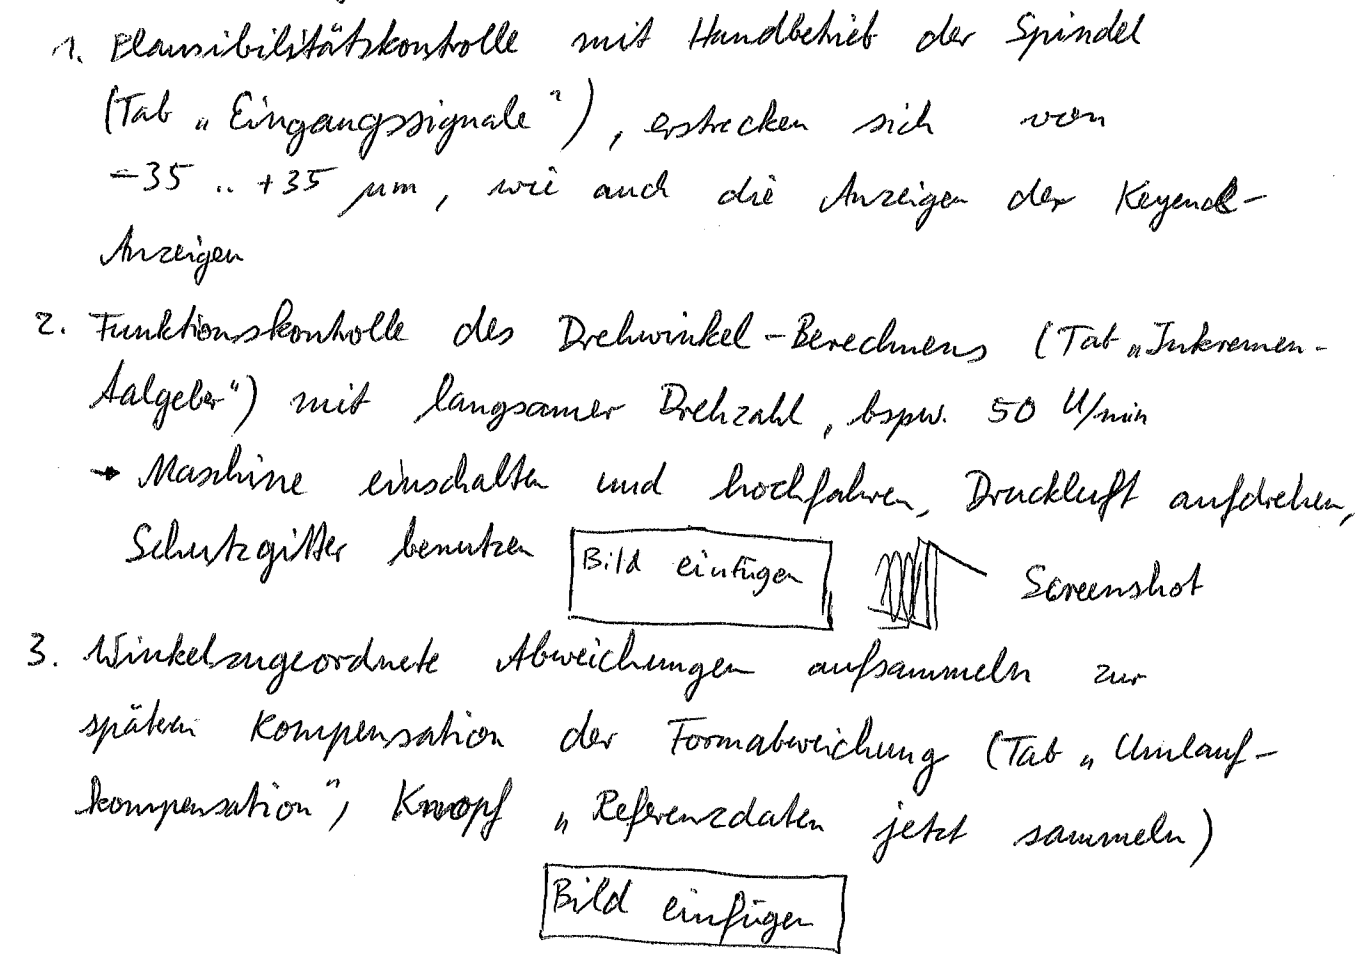 1. Plausibilitätskontrolle mit Handbetrieb der Spindel
(Tab „Eingangssignale"), erstrecken sich von
-35 .. +35 µm, wie auch die Anzeigen der Keyence-
Anzeigen
2. Funktionskontrolle des Drehwinkel-Berechnens (Tab „Inkremen-
talgeber") mit langsamer Drehzahl, bspw. 50 U/min
→ Maschine einschalten und hochfahren, Druckluft aufdrehen,
Schutzgitter benutzen Bild einfügen Screenshot
3. Winkelzugeordnete Abweichungen aufsammeln zur
spätern Kompensation der Formabweichung (Tab „Umlauf-
kompensation", Knopf „Referenzdaten jetzt sammeln)
Bild einfügen